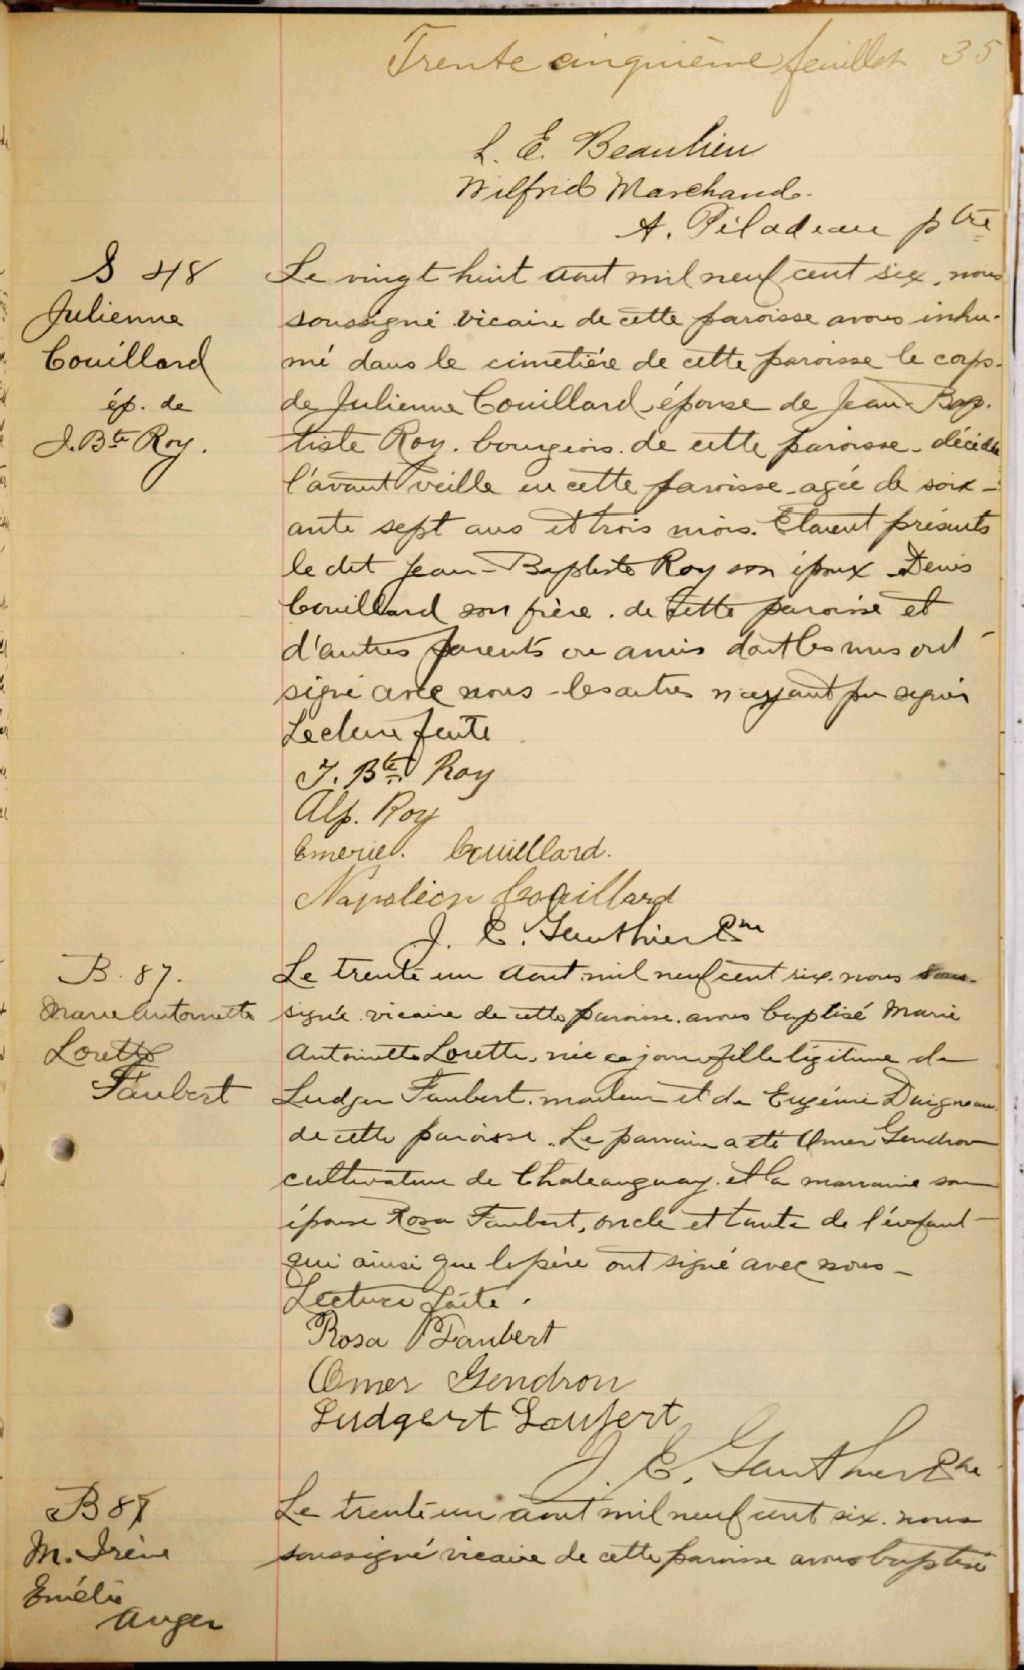 Trente cinquième feuillet 35
L. E. Beaulieu
Wilfrid Marchand.
A. Péladeau ptre
S 48
Julienne
Couillard
ép. de
J. Bte Roy.
Le vingt huit aout mil neuf cent six, nous
soussigné vicaire de cette paroisse avons inhu-
mé dans le cimetière de cette paroisse le corps
de Julienne Couillard, épouse de Jean-Bap-
tiste Roy, bourgeois, de cette paroisse, décédée
l'avant veille en cette paroisse, agée de soix-
ante sept ans et trois mois. Etaient présents
le dit Jean-Baptiste Roy son époux, Denis
Couillard son frère, de cette paroisse et
d'autres parents ou amis dont les uns ont
signé avec nous - les autres n'ayant pu signer
Lecture faite
J. Bte Roy
Alp. Roy
Emerie. Couillard.
Napoléon Couillard
J. E. Gauthier
B. 87.
Marie Antoinette
Lorette
Faubert
Le trente un aout mil neuf cent six, nous sous-
signé vicaire de cette paroisse, avons baptisé Marie
Antoinette Lorette, née ce jour, fille légitime de
Ludger Faubert, et de Eugénie Daigneau
de cette paroisse. Le parrain a été Omer Gendron
cultivateur de Chateauguay, et la marraine son
épouse Rosa Faubert, oncle et tante de l'enfant
qui ainsi que le père ont signé avec nous -
Lecture faite.
Rosa Faubert
Omer Gendron
Ludgert Loufert
J. E. Gauthier
B 88
M. Irène
Emélie
Auger
Le trente un aout mil neuf cent six, nous
soussigné vicaire de cette paroisse avons baptisé